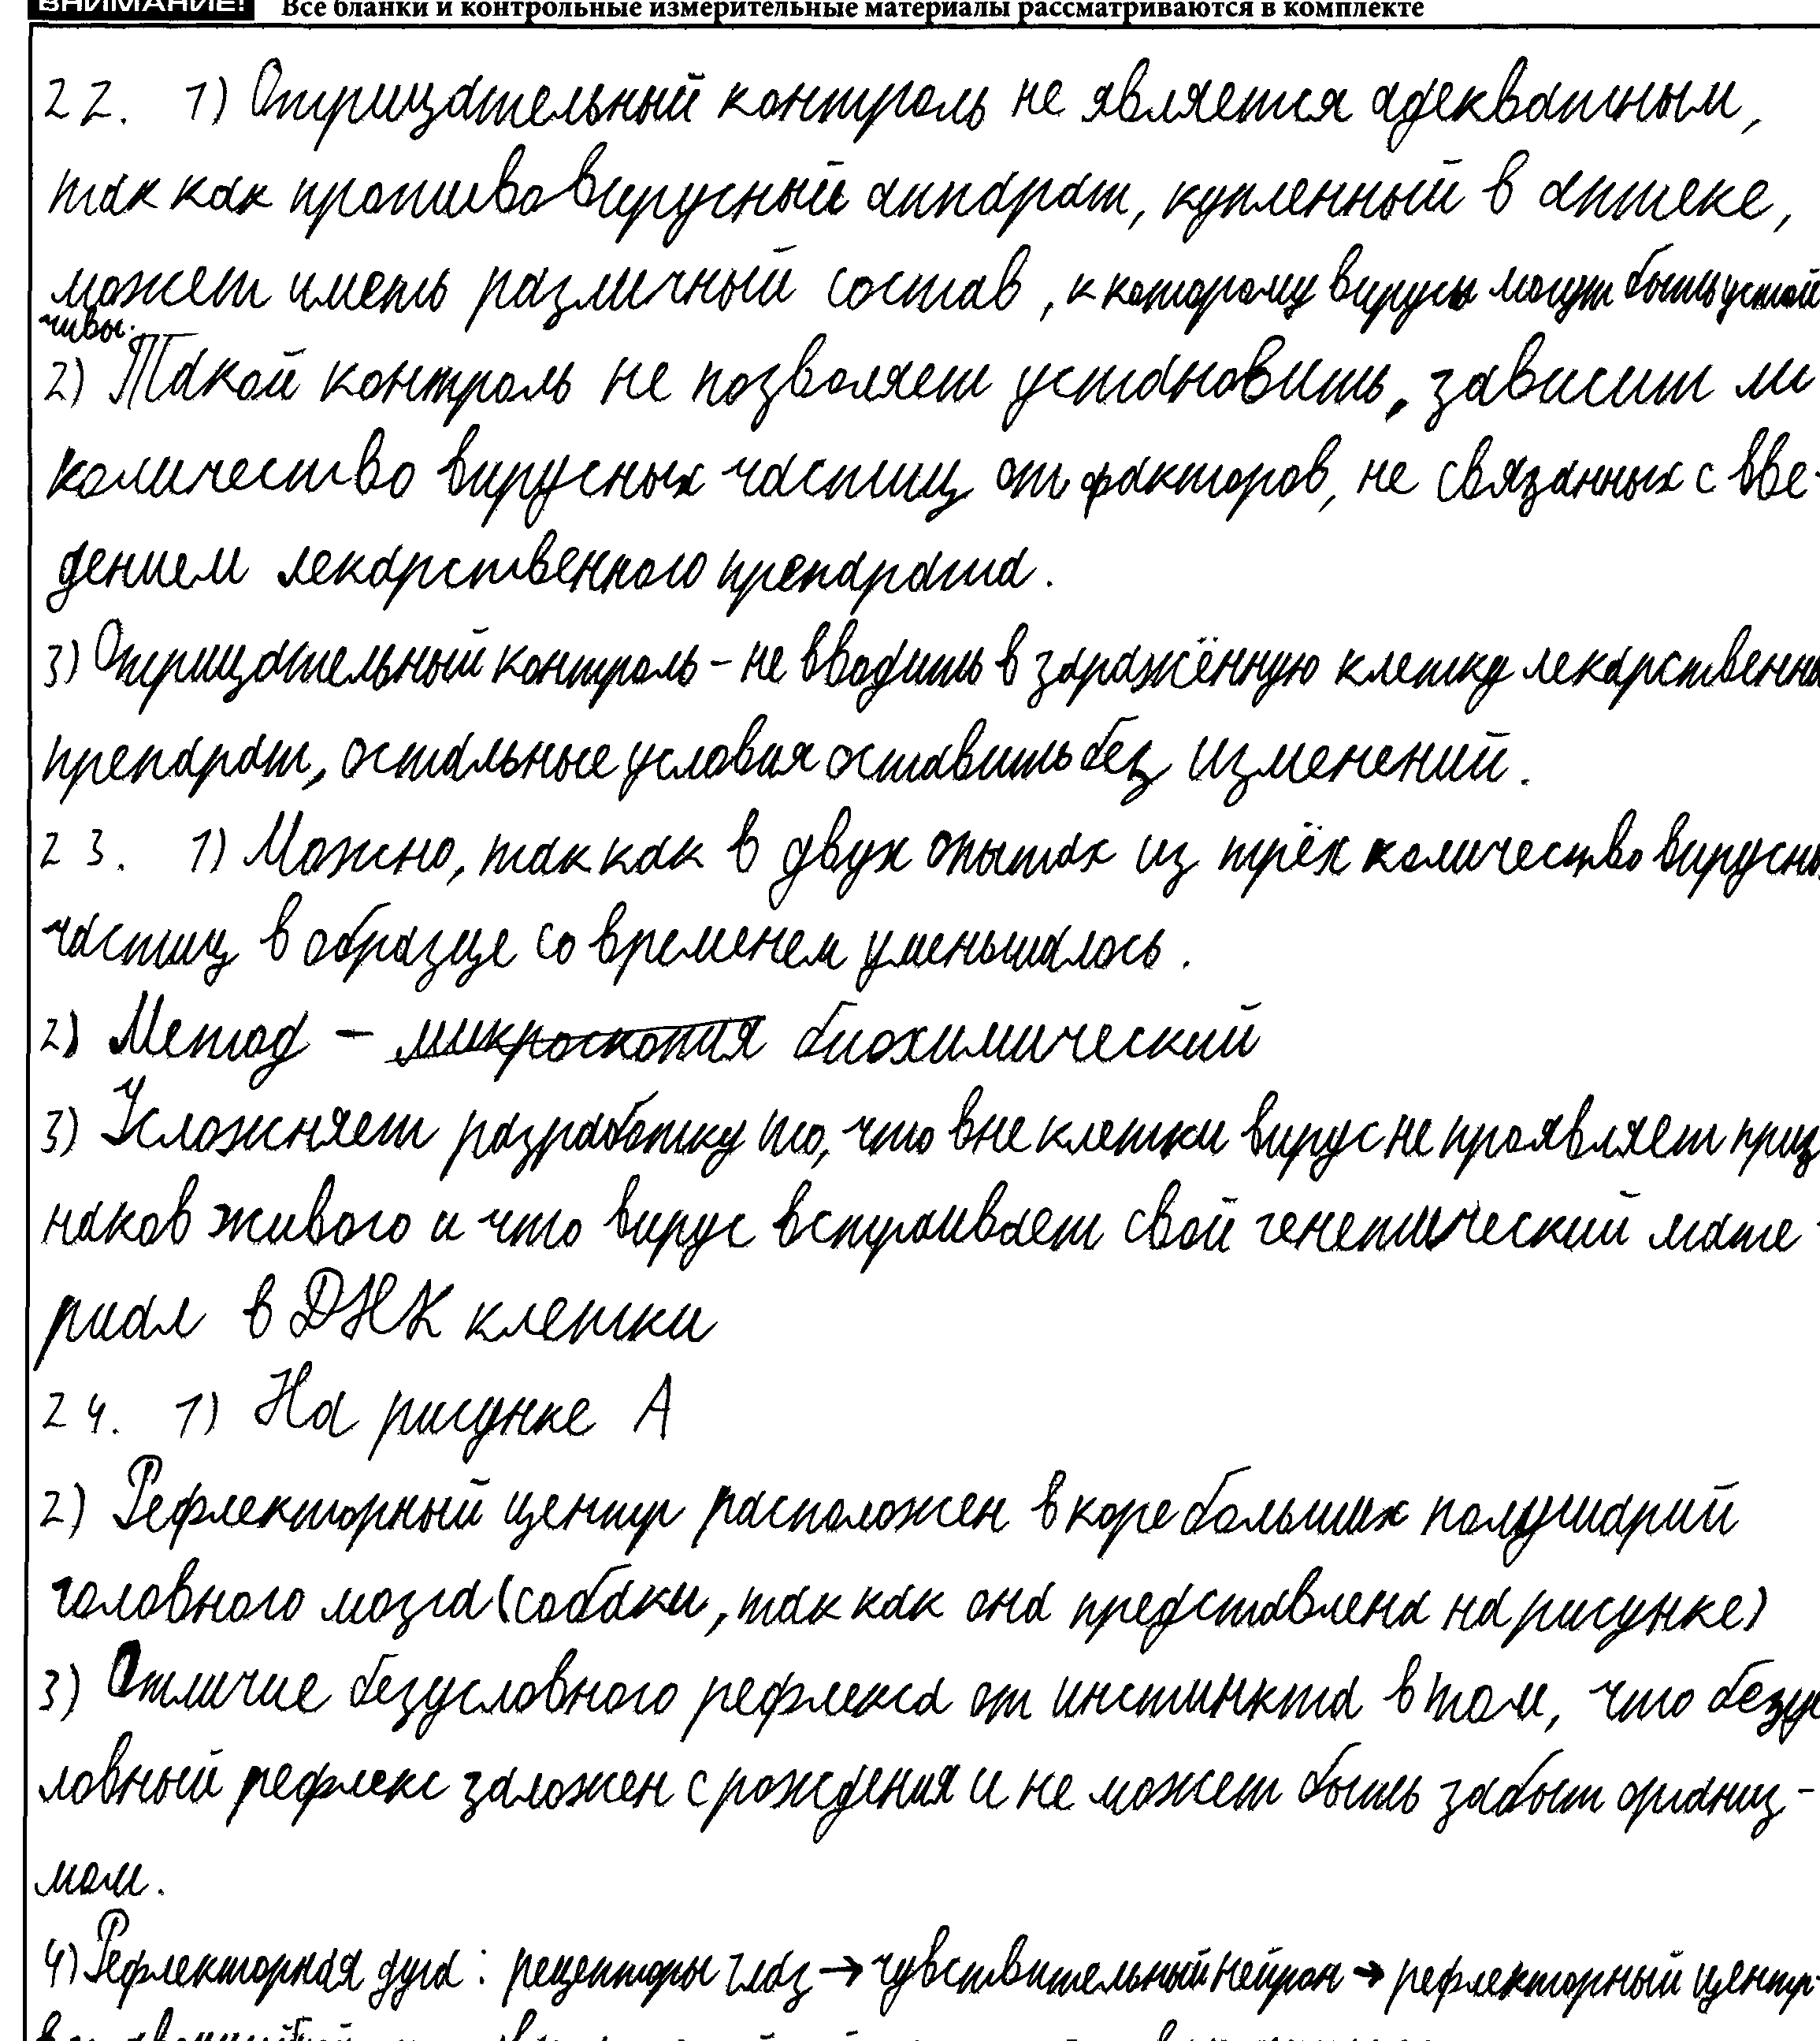 ВНИМАНИЕ! Все бланки и контрольные измерительные материалы рассматриваются в комплекте
22. 1) Отрицательный контроль не является адекватным,
так как противовирусный аппарат, купленный в аптеке,
может иметь различный состав, к которому вирусы могут быть устой
чивы.
2) Такой контроль не позволяет установить, зависит ли
количество вирусных частиц от факторов, не связанных с вве-
дением лекарственного препарата.
3) Отрицательный контроль - не вводить в заражённую клетку лекарственн
препарат, остальные условия оставить без изменений.
23. 1) Можно, так как в двух опытах из трёх количество вирусн
частиц в образце со временем уменьшалось.
2) Метод - микроскопия биохимический
3) Усложняет разработку то, что вне клетки вирус не проявляет приз
наков живого и что вирус встраивает свой генетический мате-
риал в ДНК клетки
24. 1) На рисунке А
2) Рефлекторный центр расположен в коре больших полушарий
головного мозга (собаки, так как она представлена на рисунке)
3) Отличие безусловного рефлекса от инстинкта в том, что безус
ловный рефлекс заложен с рождения и не может быть забыт организ-
мом.
4) Рефлекторная дуга: рецепторы глаз → чувствительный нейрон → рефлекторный центр